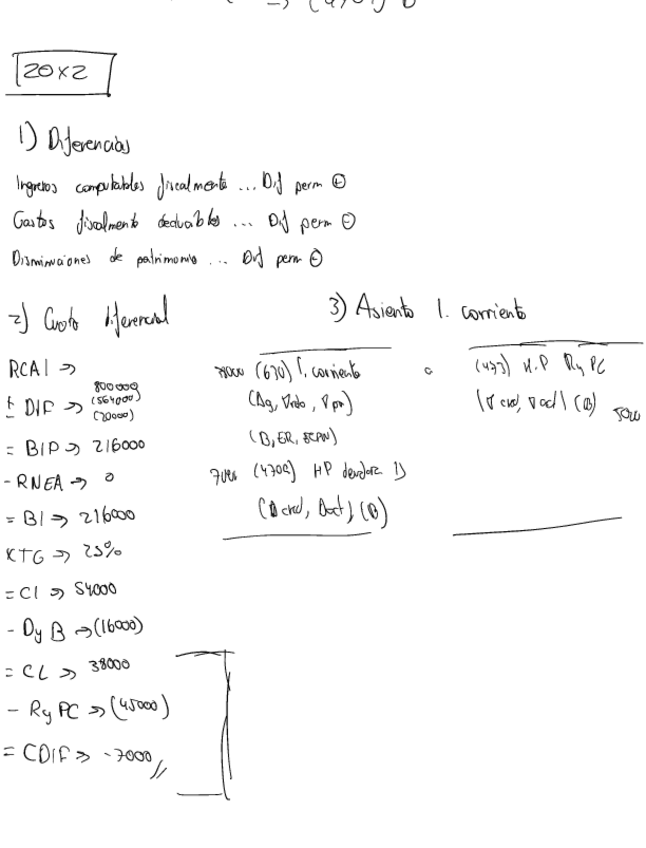 => (470?) B
20X2
1) Diferencias
Ingresos computables fiscalmente ... Dif perm ⊕
Gastos fiscalmente deducibles ... Dif perm ⊖
Disminuciones de patrimonio ... Dif perm ⊖
2) Cuota diferencial
RCAI =>
800000
± DIF => (564000)
(20000)
= BIP => 216000
- RNEA => 0
= BI => 216000
XTG => 25%
= CI => 54000
- D y B => (16000)
= CL => 38000
- Ry PC => (45000)
= CDIF => -7000 //
3) Asiento I. corriente
(630) I. corriente a (473) H.P Ry PC
(B, ER, ECPN)
(4709) HP deudora